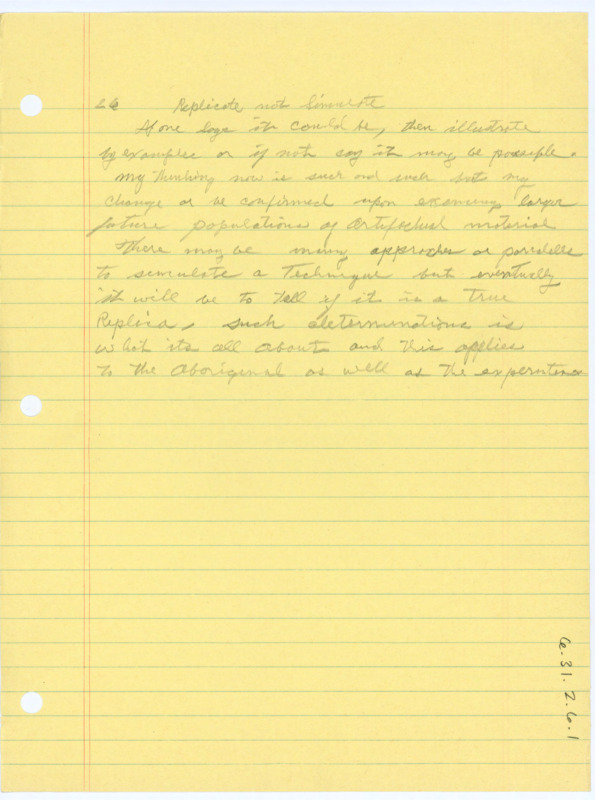 26 Replicate not Simulate
If one says it could be, then illustrate
by examples or if not say it may be possible.
My thinking now is such and such but my
change or be confirmed upon examing larger
future populations of artifactual material
There may be many approaches or parallels
to simulate a technique but eventually
it will be to tell if it is a true
Replica, such determinations is
what its all about and this applies
to the aboriginal as well as the
6.31.2.6.1